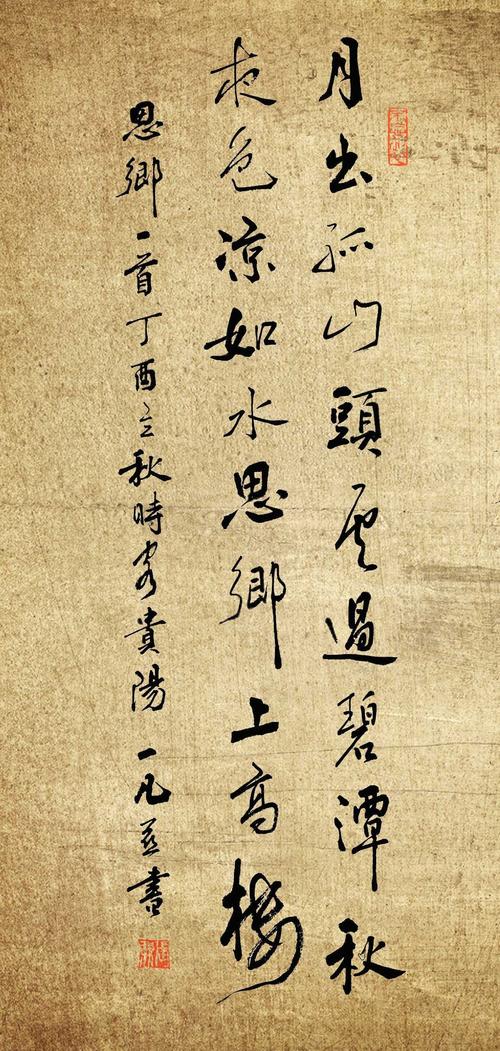 月出孤山頭雲過碧潭秋
夜色涼如水思鄉上高樓
思鄉一首丁酉立秋時客貴陽一凡並書